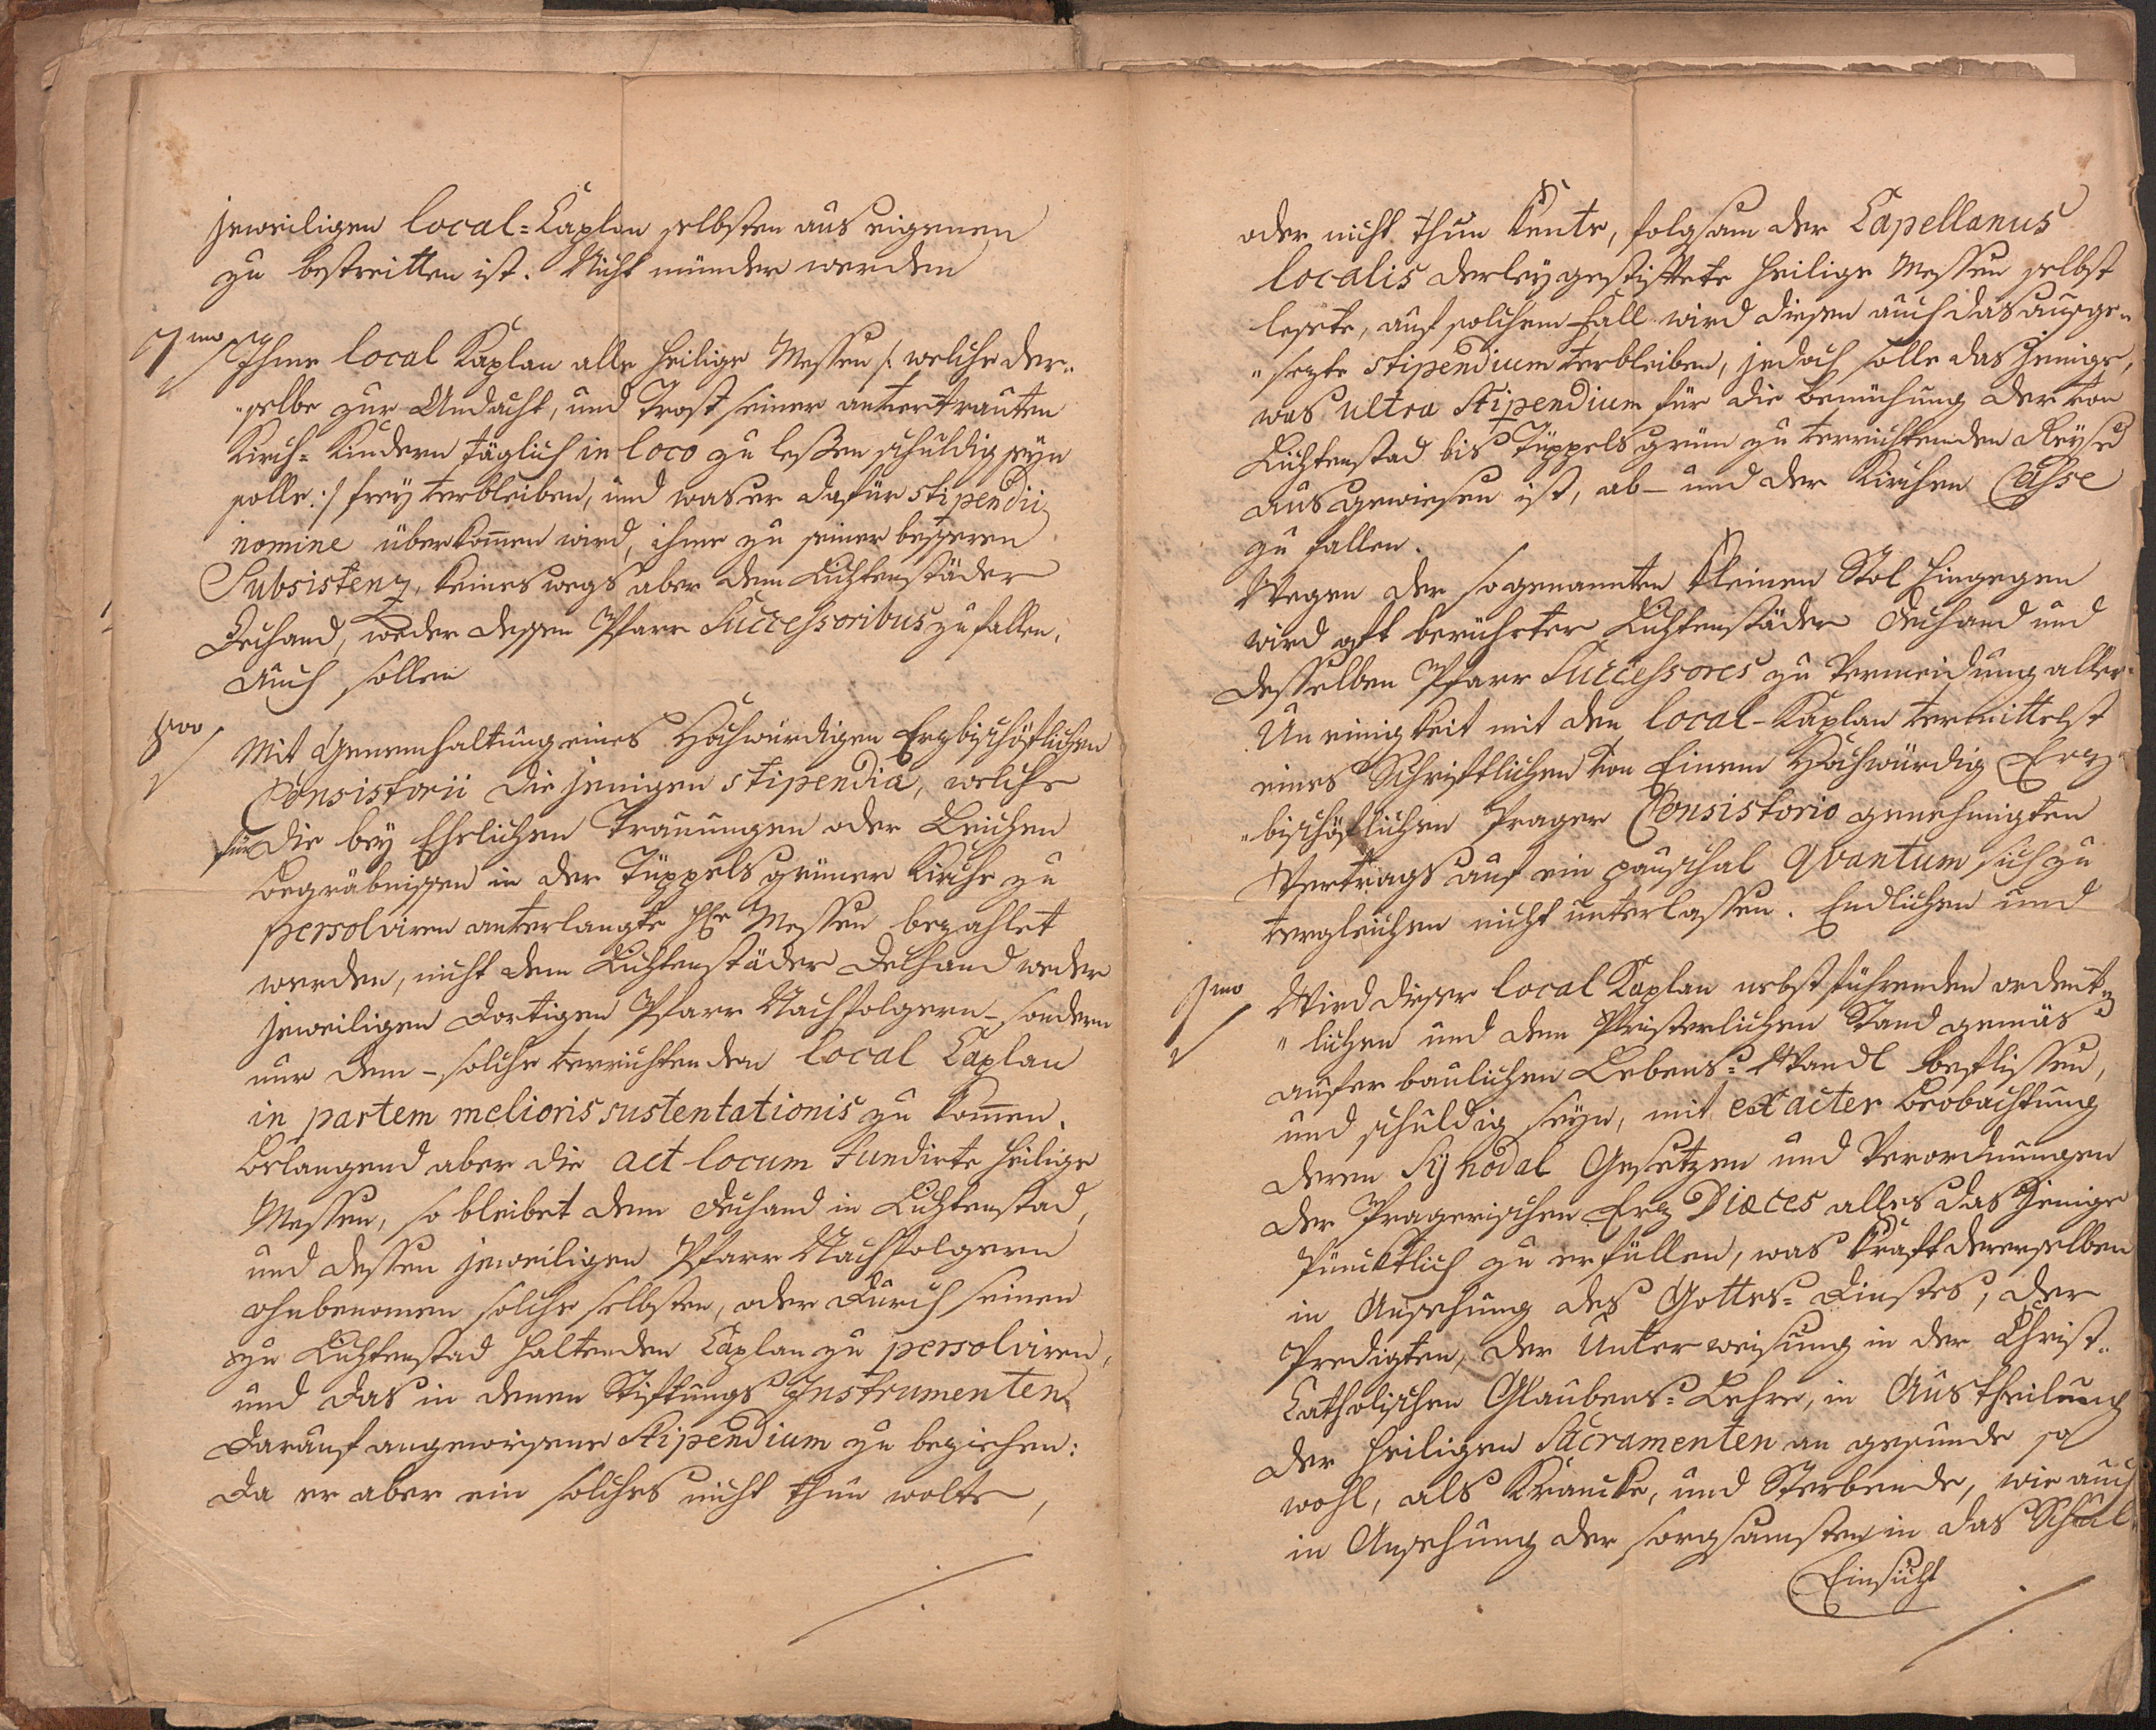 jeweiligen local=Caplan selbsten aus eigenen
zu bestreitten ist. Nicht münder werden
7mo Ihme local Kaplan alle heilige Messen /: welche der„
„selbe zur Andacht, und Trost seiner anvertrauten
Kirch=Kindern täglich in loco zu leßen schuldig seyn
solle :/ frey verbleiben, und was er dafür stipendii
nomine überkom̄en wird, ihme zu seiner besseren
Subsistenz, keines wegs aber dem Lichtenstäder
Dechand, weder dessen Pfarr Successoribus zu fallen,
Auch sollen
8vo Mit Genemhaltung eines Hochwürdigen Erzbischöflichen
Consistorii die jenigen stipendia, welche
für die bey Ehelichen Trauungen oder Leichen
Begräbnissen in der Tüppelsgrüner Kirche zu
persolviren anverlangte hle Messen bezahlet
werden, nicht dem Lichtenstäder Dechand weder
jeweiligen dortigen Pfarr Nachfolgern – sondern
nur dem – solche verrichtenden local Caplan
in partem melioris sustentationis zu kom̄en.
Belangend aber die act locum fundirte heilige
Messen, so bleibet dem Dechand in Lichtenstad,
und dessen jeweiligen Pfarr Nachfolgern
ohnbenomen solche selbsten, oder durch seinen
zu Lichtenstad haltenden Caplan zu persolviren,
und das in denen Stiftungs Instrumenten
darauf angewisene Stipendium zu beziehen:
Da er aber ein solches nicht thun wolte,
oder nicht thun kente, folgsam der Capellanus
localis derley gestiftete heilige Messen selbst
lesete, auf solchem Fall wird diesen auch das ausge„
„sezte stipendium verbleiben, jedoch solle das jenige,
was ultra Stipendium für die Bemühung der von
Lichtenstad bis Tüppelsgrün zu verrichtenden Reyse
ausgewiesen ist, ab – und der Kirchen Casse
zu fallen.
Wegen der sogenannten kleinen Stol hingegen
wird oft berührter Lichtenstäder Dechand und
desselben Pfarr Successores zu Vermeidung aller
Uneinigkeit mit den local-Kaplan vermittelst
eines Schriftlichen von Einem Hochwürdig Erz„
„bischöflichen Prager Consistorio genehmigten
Vertrags auf ein pauschal Qvantum sich zu
vergleichen nicht unterlassen. Endlichen und
9mo Wird dieser local Kaplan nebst führenden ordent„
„lichen und dem Pristerlichen Stand gemäs
auferbaulichen Lebens=Wandl beflissen,
und schuldig seyn, mit exacter Beobachtung
deren Synodal Gesetzen und Verordnungen
der Pragerischen Erz Diœces alles das jenige
Pünucktlich zu erfüllen, was kraft dererselben
in Ansehung des Gottes=Dinstes, der
Predigten, der Unterweisung in der Christ„
Catholischen Glaubens=Lehre, in Austheilung
der heiligen Sacramenten an gesunde so
wohl, als Krancke, und Sterbende, wie auch
in Ansehung der sorgsamsten in das Schul„
Einsicht